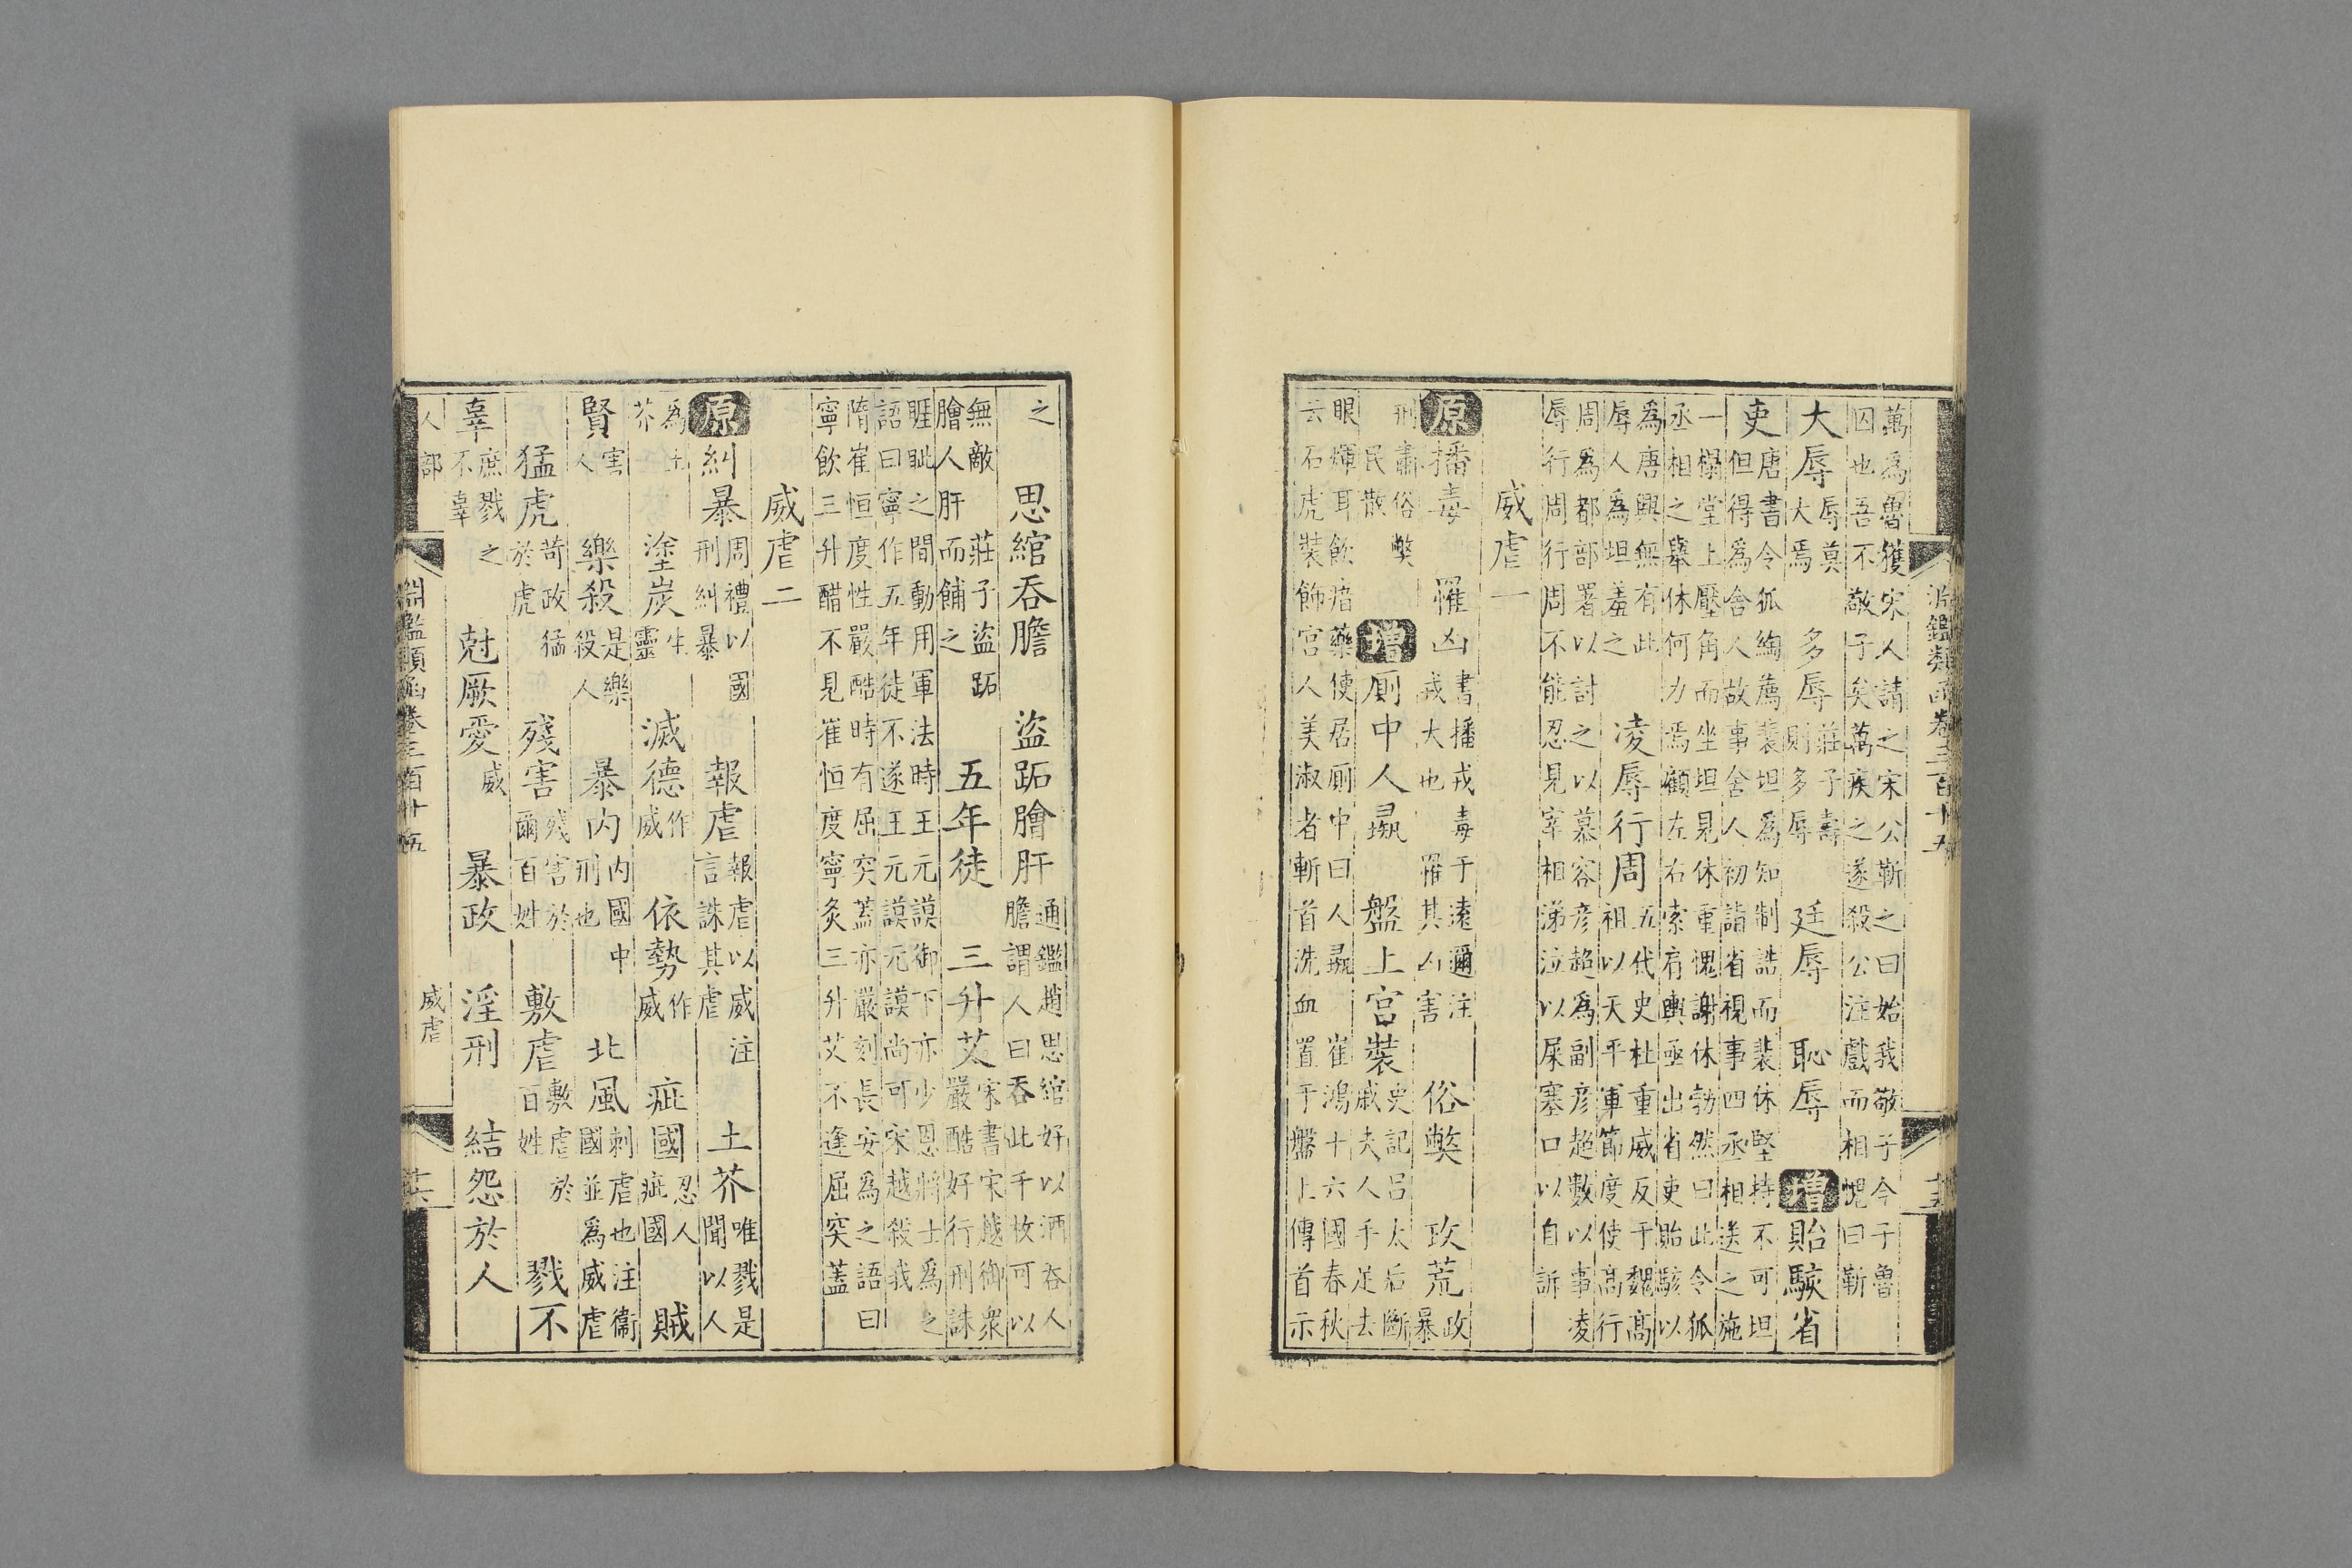 淵鑑類函卷三百十五 十五
萬為魯獲宋人請之宋公靳之曰始我敬子今子魯
囚也吾不敬子矣萬疾之遂殺公注戲而相愧曰靳
大辱 辱莫大焉 多辱 莊子壽則多辱 廷辱 恥辱 增 貽駭省
吏 唐書令狐綯薦裴坦為知制誥而裴休堅持不可坦
但得為舍人故事舍人初詣省視事四丞相送之施
一榻堂上壓角而坐坦見休重愧謝休勃然曰此令狐
丞相之舉休何力焉顧左右索肩輿亟出省吏貽駭以
為唐興無有此辱人為坦羞之 凌辱行周 五代史杜重威反于魏高祖以天平軍節度使高行
周為都部署以討之以慕容彥超為副彥超數以事凌
辱行周行周不能忍見宰相涕泣以屎塞口以自訴
威虐一
原 播毒 罹凶 書播戎毒于遠邇注戎大也 罹其凶害 俗獘 政荒 政暴
刑肅俗獘民散 增 廁中人彘 盤上宮裝 史記呂太后斷戚夫人手足去
眼煇耳飲瘖藥使居廁中曰人彘 崔鴻十六國春秋
云石虎裝飾宮人美淑者斬首洗血置于盤上傳首示
之 思綰吞膽 盜跖膾肝 通鑑趙思綰好以酒吞人膽謂人曰吞此千枚可以
無敵 莊子盜跖膾人肝而餔之 五年徒 三升艾 宋書宋越御眾嚴酷好行刑誅
睚眦之間動用軍法時王元謨御下亦少恩將士為之
語曰寧作五年徒不逐王元謨元謨尚可宋越殺我
隋崔恒度性嚴酷時有屈突蓋亦嚴刻長安為之語曰
寧飲三升醋不見崔恒度寧灸三升艾不逢屈突蓋
威虐二
原 糾暴 周禮以國刑糾暴 報虐 報虐以威注言誅其虐 土芥 唯戮是聞以人
為土芥 塗炭 生靈 滅德 作威 依勢 作威 疵國 忍人疵國 賊
賢 害人 樂殺 是樂殺人 暴內 內國中刑也 北風 刺虐也注衞國並為威虐
猛虎 苛政猛於虎 殘害 殘害於爾百姓 敷虐 敷虐於百姓 戮不
辜 庶戮之不辜 尅厥愛 威 暴政 淫刑 結怨於人
人部 威虐
淵鑑類函卷三百十五 十六